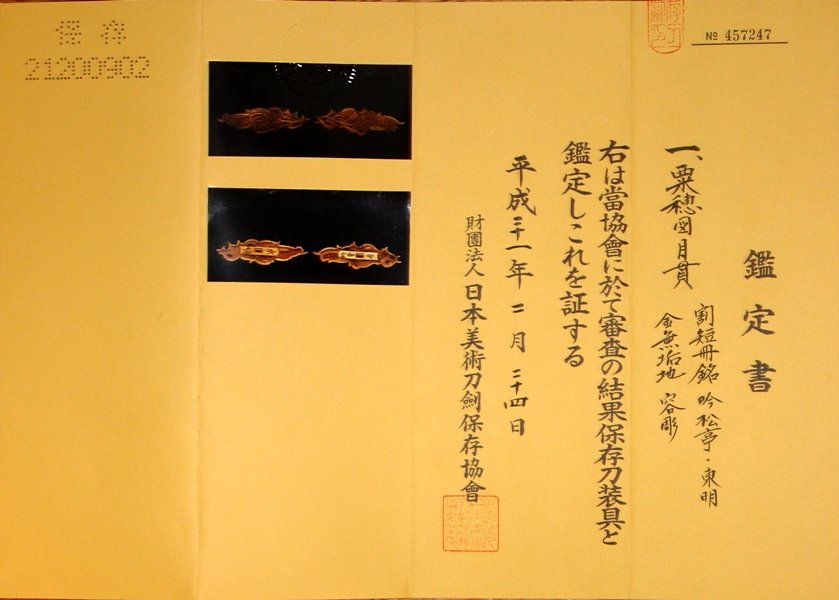 № 457247
鑑定書
一、粟穂図目貫
割短冊銘 吟松亭・東明
金無垢地 容彫
右は當協會に於て審査の結果保存刀装具と
鑑定しこれを証する
平成二十一年 二月 二十四日
財團法人日本美術刀劍保存協會
保存
21200902